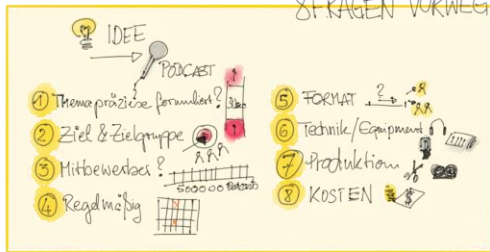 8 FRAGEN VORWEG
IDEE
PODCAST
1 Thema präzise formuliert?
2 Ziel & Zielgruppe
3 Mitbewerber?
500000 Podcasts
4 Regelmäßig
5 FORMAT ?
6 Technik/Equipment
7 Produktion
8 KOSTEN $